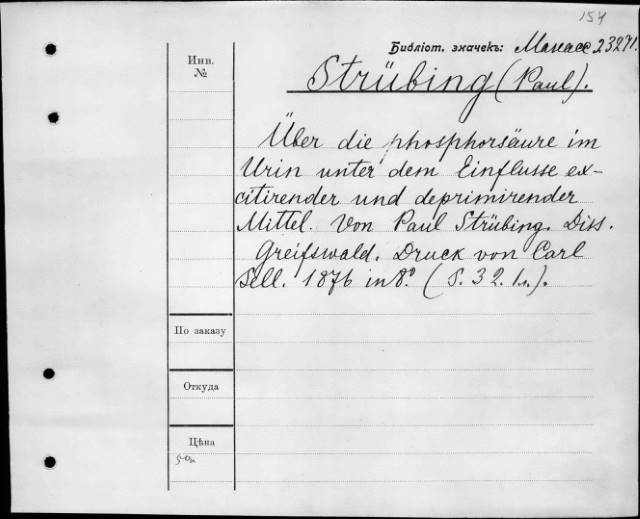 154
Библіот. значекъ: 23271.
Инв.
№
Strübing (Paul).
Über die phosphorsäure im
Urin unter dem Einflusse ex-
citirender und deprimirender
Mittel. Von Paul Strübing. Diss.
Greifswald. Druck von Carl
Sell. 1876 in 8º. (S. 32. 1 л.).
По заказу
Откуда
Цѣна